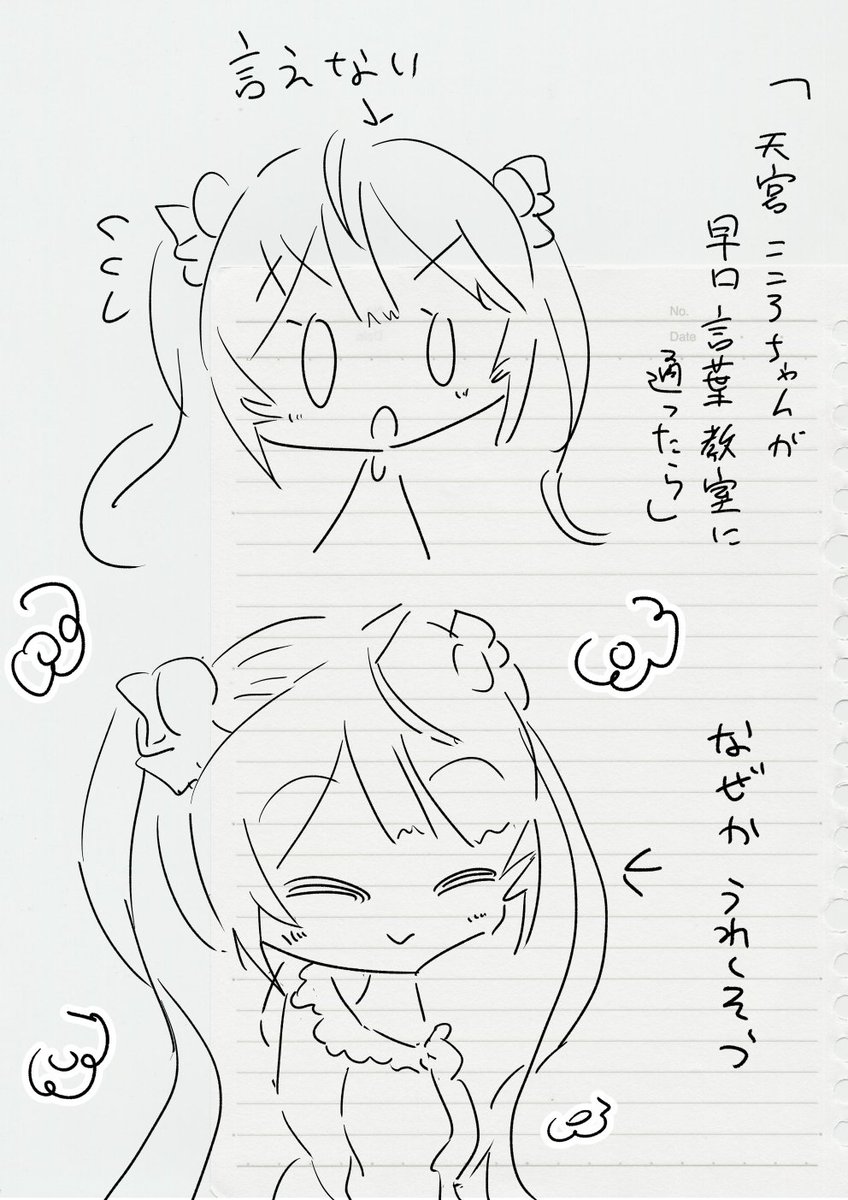 「天宮こころちゃんが
早口言葉教室に
通ったら」
言えない
No.
Date
なぜかうれしそう